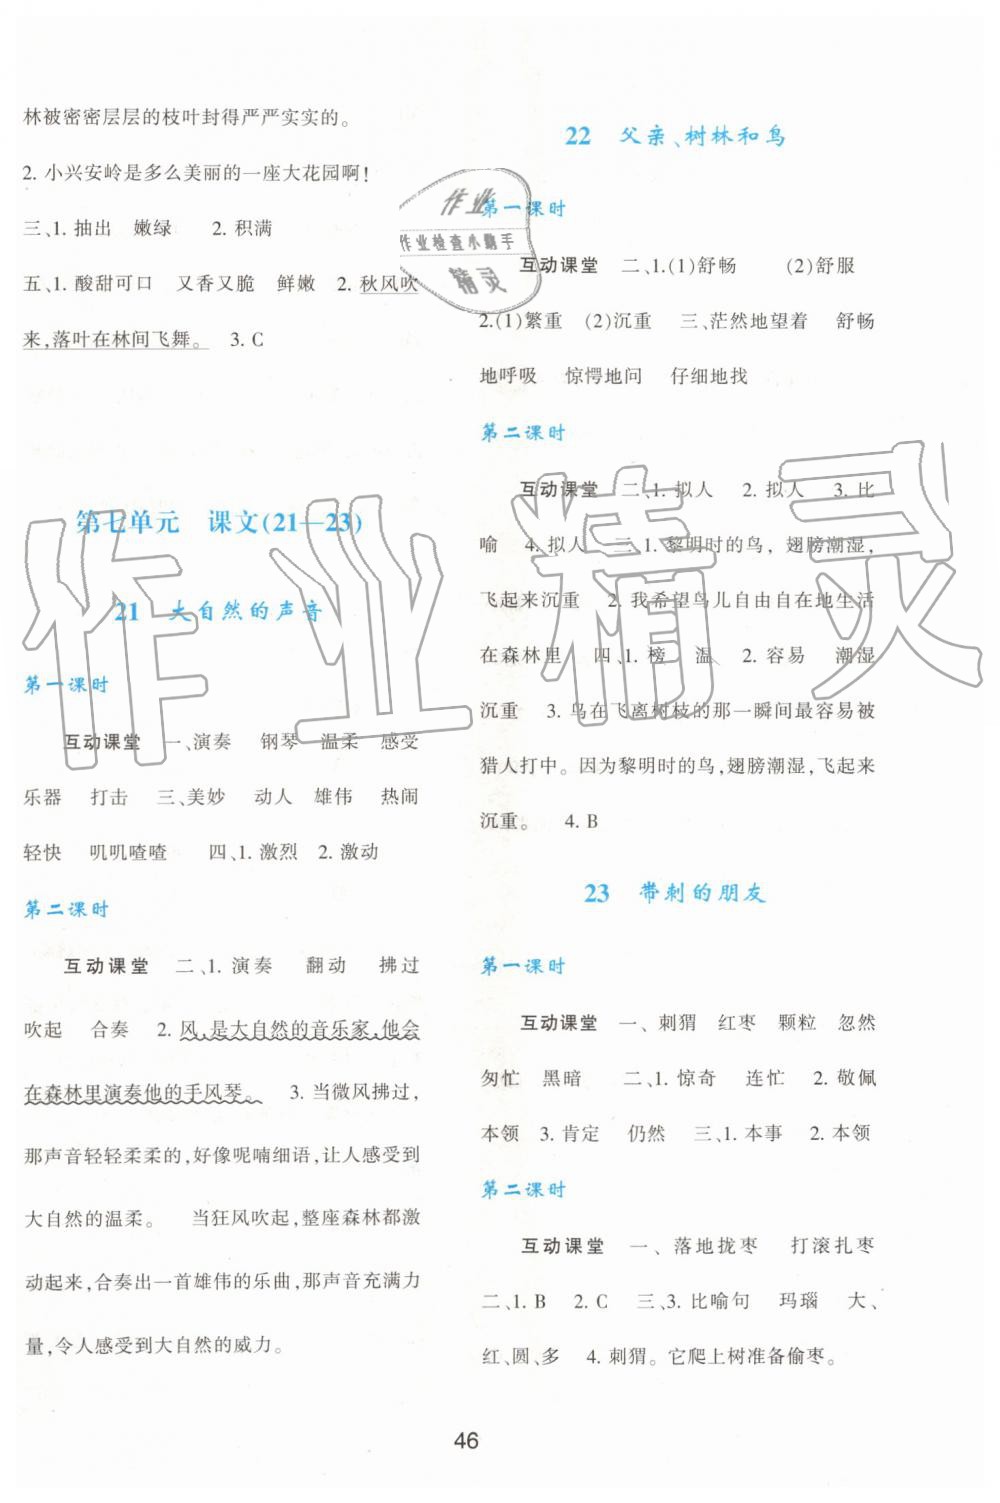 林被密密层层的枝叶封得严严实实的。
2. 小兴安岭是多么美丽的一座大花园啊!
三、1. 抽出 嫩绿 2. 积满
五、1. 酸甜可口 又香又脆 鲜嫩 2. 秋风吹
来,落叶在林间飞舞。 3. C
第七单元 课文(21—23)
21 大自然的声音
第一课时
互动课堂 一、演奏 钢琴 温柔 感受
乐器 打击 三、美妙 动人 雄伟 热闹
轻快 叽叽喳喳 四、1. 激烈 2. 激动
第二课时
互动课堂 二、1. 演奏 翻动 拂过
吹起 合奏 2. 风,是大自然的音乐家,他会
在森林里演奏他的手风琴。 3. 当微风拂过,
那声音轻轻柔柔的,好像呢喃细语,让人感受到
大自然的温柔。 当狂风吹起,整座森林都激
动起来,合奏出一首雄伟的乐曲,那声音充满力
量,令人感受到大自然的威力。
22 父亲、树林和鸟
第一课时
互动课堂 二、1.(1)舒畅 (2)舒服
2.(1)繁重 (2)沉重 三、茫然地望着 舒畅
地呼吸 惊愕地问 仔细地找
第二课时
互动课堂 二、1. 拟人 2. 拟人 3. 比
喻 4. 拟人 三、1. 黎明时的鸟, 翅膀潮湿,
飞起来沉重 2. 我希望鸟儿自由自在地生活
在森林里 四、1. 榜 温 2. 容易 潮湿
沉重 3. 鸟在飞离树枝的那一瞬间最容易被
猎人打中。因为黎明时的鸟,翅膀潮湿,飞起来
沉重。 4. B
23 带刺的朋友
第一课时
互动课堂 一、刺猬 红枣 颗粒 忽然
匆忙 黑暗 二、1. 惊奇 连忙 2. 敬佩
本领 3. 肯定 仍然 三、1. 本事 2. 本领
第二课时
互动课堂 一、落地拢枣 打滚扎枣
二、1. B 2. C 三、3. 比喻句 玛瑙 大、
红、圆、多 4. 刺猬。它爬上树准备偷枣。
46
作业
作业检查小助手
精灵
作业精灵